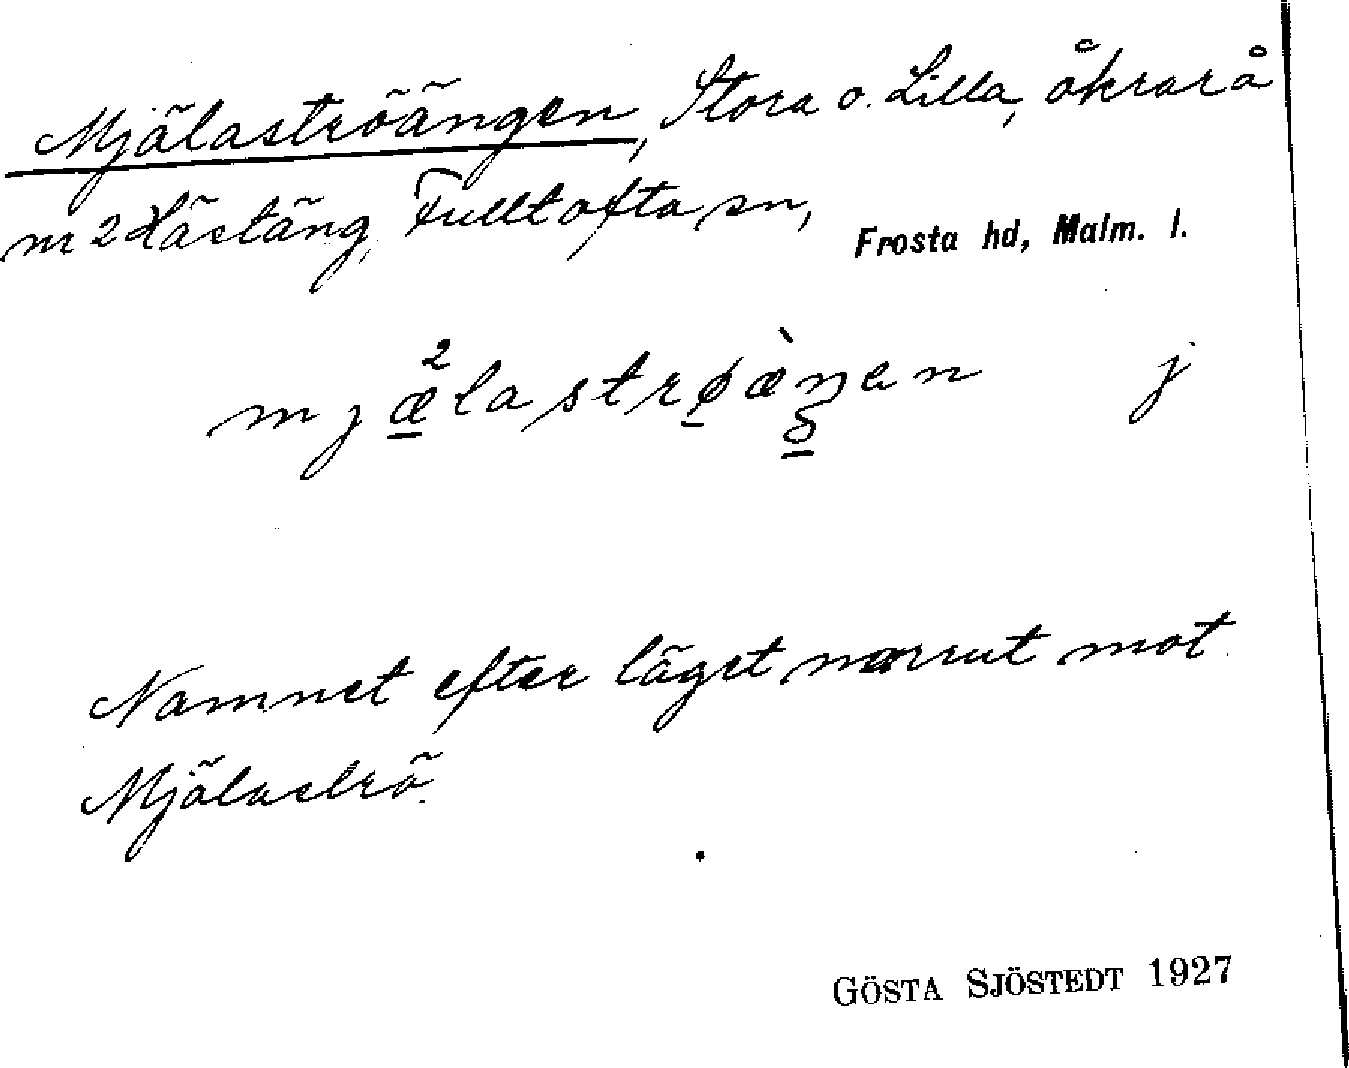 Mjälaströängen, Stora o. Lilla, åkrar å
nr 2 Hästäng, Fulltofta sn, Frosta hd, Malm. l.
mjælastrøæŋen j
Namnet efter läget norrut mot
Mjälaströ.
GÖSTA SJÖSTEDT 1927